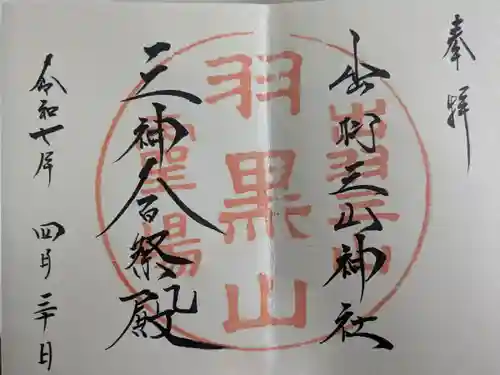 奉拝
出羽三山神社
三神合祭殿
令和七年 四月三十日
出羽三山
羽黒山
霊場